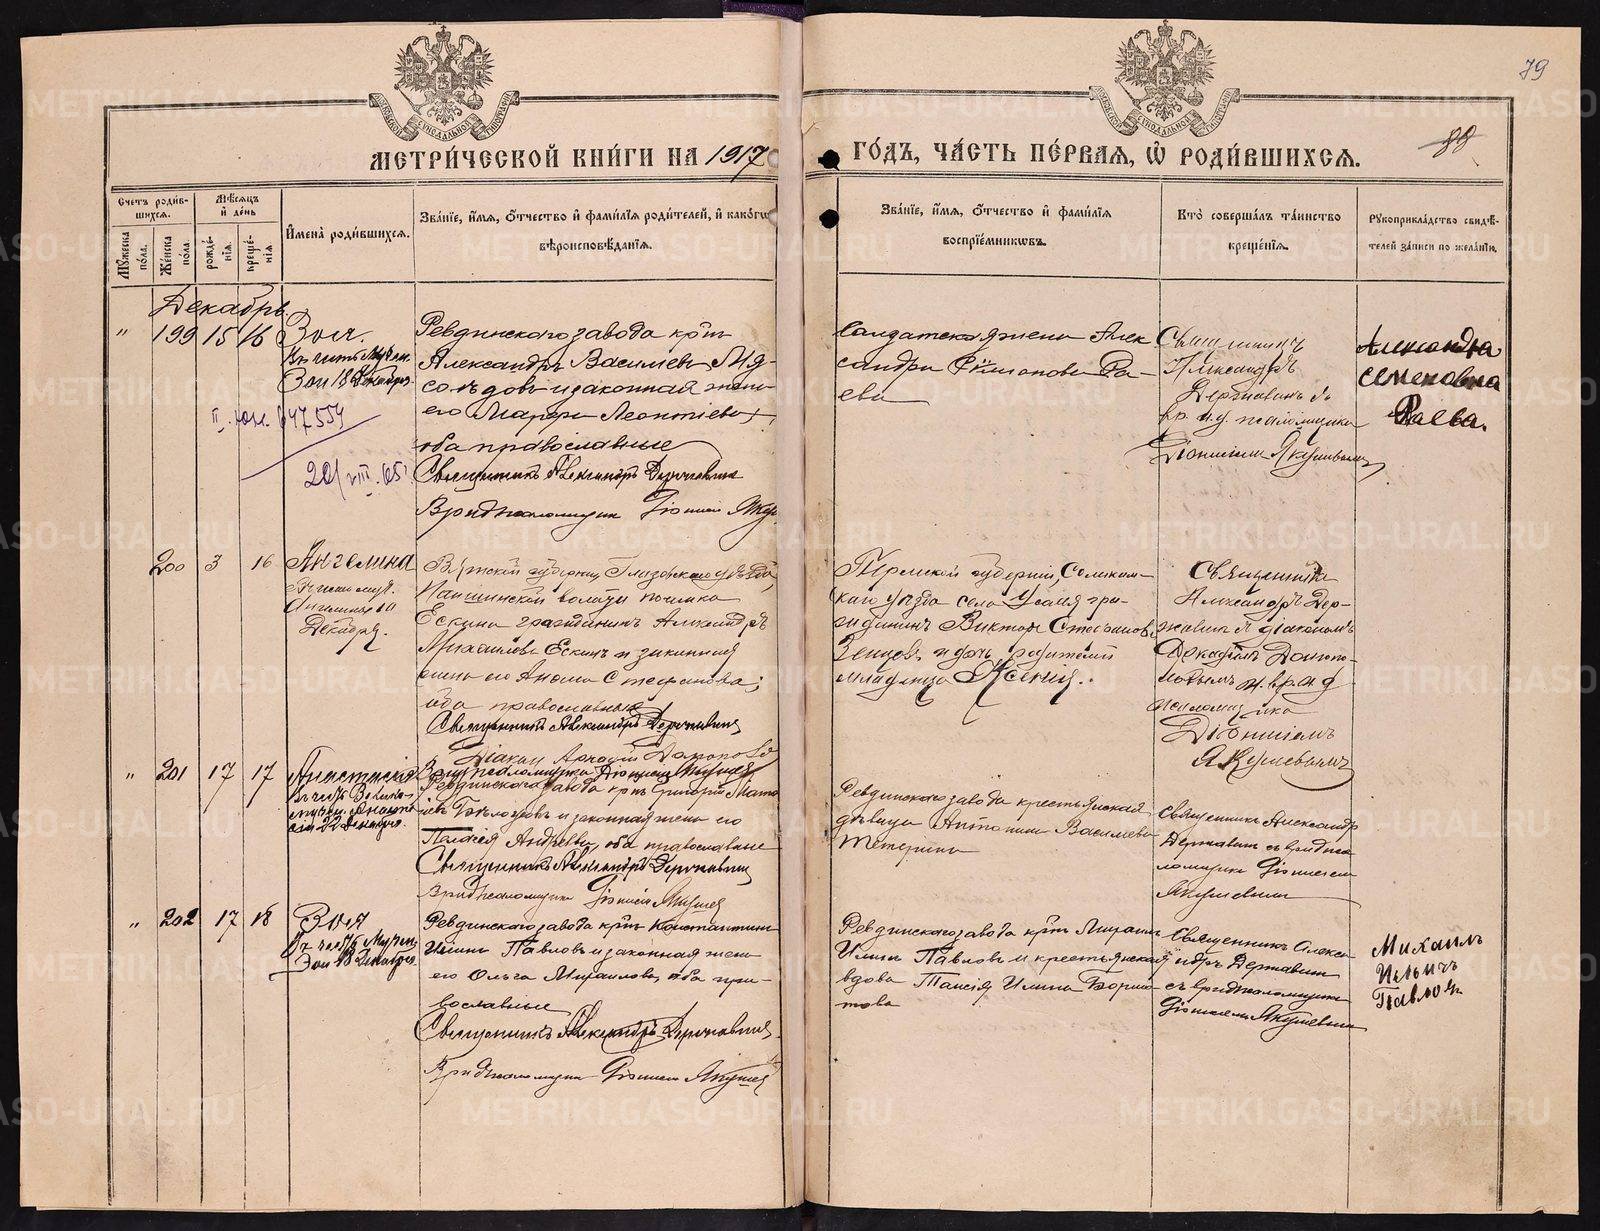 79
88
МЕТРИ́ЧЕСКОЙ КНИ́ГИ НА 1917
ГО́ДЪ, ЧА́СТЬ ПЕ́РВАЯ, Ѡ҆ РОДИ́ВШИХСЯ.
Счетъ родив-
шихся.
Мѣ́сяцъ
и҆ де́нь
Мꙋжеска
по́ла.
Же́нска
по́ла.
рожде́-
нїя.
креще́-
нїя.
И҆мена̀ роди́вшихся.
Зва́нїе, и҆́мя, ѻ҆́тчество и҆ фами́лїя роди́телей, и҆ како́гѡ
вѣроисповѣ́данїя.
Зва́нїе, и҆́мя, ѻ҆́тчество и҆ фами́лїя
воспрїе́мникѡвъ.
Кто̀ соверша́лъ та́инство
креще́нїя.
Рꙋкоприкла́дство свидѣ́-
телей за́писи по жела́нїю.
Декабрь.
" 199 15 16 Зоя.
Въ честь Мучен.
Зои 18 Декабря.
20/VIII.65
Ревдинскаго завода кр-нъ
Александръ Васильевъ
и законная жена
его Марфа Леонтіева,
оба православные
Священникъ Александръ Державинъ
Врид псаломщика Діонисій Якуш
Солдатская жена Алек
сандра Симонова Ра-
ева
Священникъ
Александръ
Державинъ съ
вр. и.д. псаломщика
Діонисіемъ Якушевымъ
Александра
Семеновна
Раева.
200 3 16 Ангелина
Въ честь муч.
Ангелины 10
Декабря.
Вятской губерніи Глазовскаго уѣзда,
волости починка
Ескина гражданинъ Александръ
Михайловъ Ескинъ и законная
жена его Анна Стефанова;
оба православные
Священникъ Александръ Державинъ
Діаконъ Аркадій
Врид псаломщика Діонисій Якушев
Пермской губерніи, Соликам-
скаго уѣзда села Усолья гра-
жданинъ Викторъ Стефановъ
и дочь родителей
младенца Ксенія.
Священникъ
Александръ Дер-
жавинъ съ діакономъ
Аркадіемъ
и врид
псаломщика
Діонисіемъ
Якушевымъ
" 201 17 17 Анастасія
Въ честь Велико-
мучен. Анаста
сіи 22 Декабря.
Ревдинскаго завода кр-нъ Григорій Матѳ
іевъ и законная жена его
Андреева, оба православные
Священникъ Александръ Державинъ
Врид псаломщика Діонисій Якушев
Ревдинскаго завода крестьянская
дѣвица Антонина Васильева
Тетерина
Священникъ Александр
Державинъ съ врид пса
ломщика Діонисіем
Якушевым
" 202 17 18 Зоя
Въ честь Мучен.
Зои 18 Декабря
Ревдинскаго завода кр-нъ Константинъ
Ильинъ Павловъ и законная жена
его Ольга Михаилова, оба пра-
вославные
Священникъ Александръ Державинъ
Врид псаломщика Діонисій Якушев
Ревдинскаго завода кр-нъ Михаилъ
Ильинъ Павловъ и крестьянская
вдова Таисія Ильина
това
Священникъ Алекса
ндръ Державинъ
съ врид псаломщика
Діонисіемъ Якушевым
Михаилъ
Ильичъ
Павловъ
METRIKI.GASO-URAL.RU